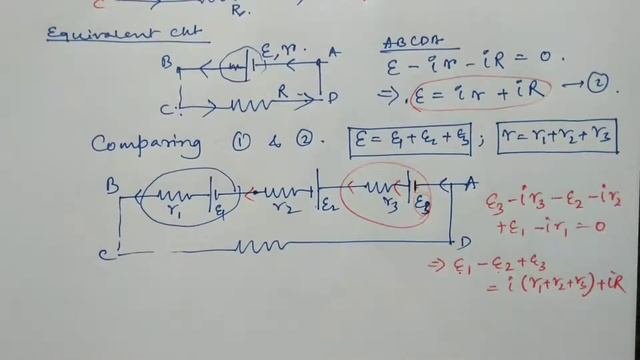 C R.
Equivalent ckt
B ε, r A
C R D
ABCDA
ε - ir - iR = 0.
⇒ ε = ir + iR → ②.
Comparing ① & ②. ε = ε1 + ε2 + ε3 ; r = r1 + r2 + r3
B r1 ε1 r2 ε2 r3 ε3 A
C D
ε3 - ir3 - ε2 - ir2
+ ε1 - ir1 = 0
⇒ ε1 - ε2 + ε3
= i (r1 + r2 + r3) + iR